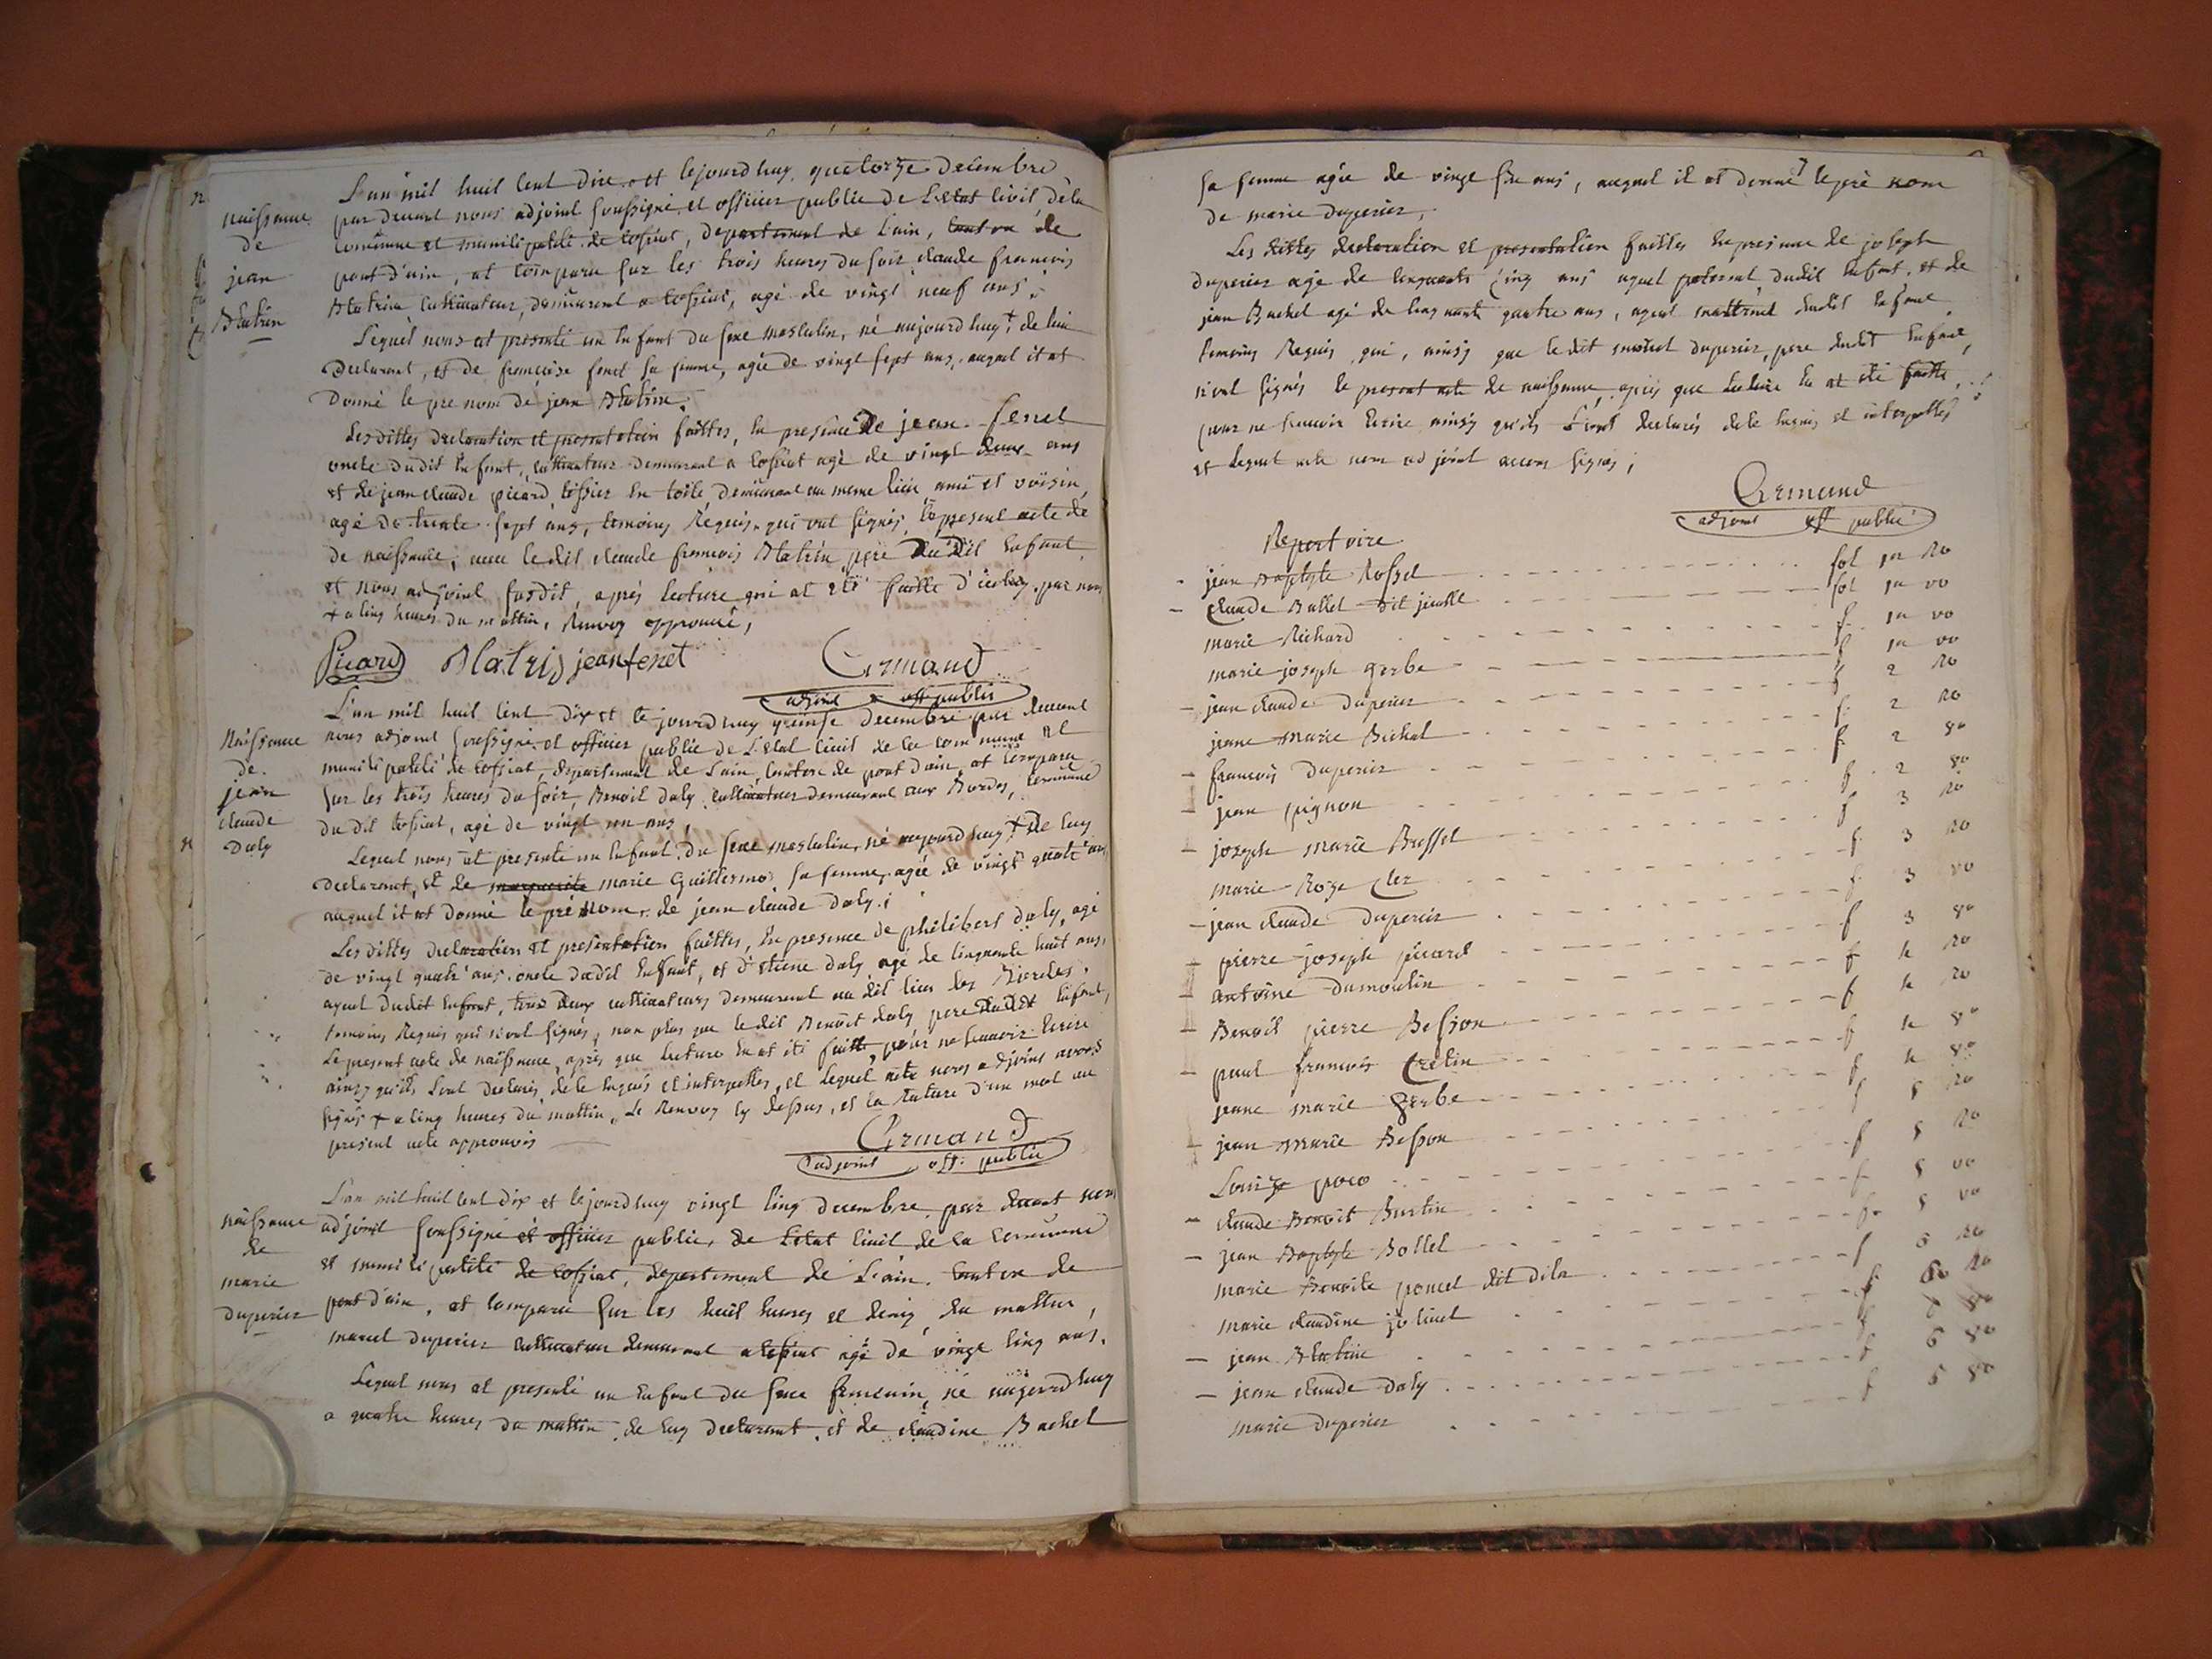 L'an mil huit cent dix et lejourdhuy quatorze Decembre
naissance
de
jean
Blatrin
par devant nous adjoint soussigné et officier public de L'Etat civil de la
commune et municipalité de tossiat, departement de L'ain, canton de
pont d'ain, at comparu sur les trois heures du soir claude francois
Blatrin cultivateur, demeurant a tossiat, agé de vingt neuf ans,
Lequel nous at presenté un enfant du sexe masculin, né aujourdhuy + de lui
Declarant, et de francoise fenet sa femme, agée de vingt sept ans, auquel il at
Donné le pre nom de jean Blatrin.
Lesdittes declaration et presentation faittes, en presence De jean fenet
oncle dudit enfant, cultivateur demeurant a tossiat agé de vingt deux ans
et de jean claude picard tissier en toile, demeurant au meme lieu ami et voisin,
agé de trente sept ans, temoins Requis, qui ont signés, le present acte de
de naissance, avec le dit claude francois Blatrin pere Du Dit enfant,
et nous adjoint susdit, aprés lecture qui at eté faitte d'iceluy, par nous
+ a cinq heures du mattin, Renvoy approuvé,
Picard Blatrin jean fenet Armand
adjoint off public
Naissance
de
jean
claude
Daly
L'an mil huit cent dix et le jourdhuy quinse decembre par devant
nous adjoint soussigné et officier public de L'Etat civil de la commune et
municipalité de tossiat, departement de L'ain, canton de pont d'ain, at comparu
sur les trois heures du soir, Benoit daly, cultivateur demeurant aux Bordes, commune
du dit tossiat, agé de vingt un ans,
Lequel nous at presenté un enfant du sexe masculin, né aujourdhuy + De luy
Declarant, et de marguerite marie Guillermo sa femme, agée de vingt quatre ans
auquel il at donné le pré nom de jean claude daly;
Les dittes declaration et presentation faittes, en presence de philibert daly, agé
de vingt quatr'ans, oncle dudit enfant, et d'etiene daly agé de cinquante huit ans,
ayeul dudit enfant, tous deux cultivateurs demeurant au dit lieu des Bordes,
temoins Requis qui n'ont signés, non plus que ledit Benoit daly pere dudit enfant,
Le present acte de naissance, aprés que lecture en at eté faitte, pour ne scavoir Ecrire
ainsy qu'ils sont declarés, de le enquis et interpellés, et lequel acte nous adjoint avons
signés + a cinq heures du mattin, Le Renvoy cy dessus, et la Rature d'un mot au
present acte approuvés
Armand
adjoint off. public
naissance
de
marie
duperier
L'an mil huit cent dix et lejourdhuy vingt cinq decembre par devant nous
adjoint soussigné et officier public, de L'etat civil de la commune
et municipalité de tossiat, departement de L'ain, canton de
pont d'ain, at comparu sur les huit heures et demy du mattin,
marcel duperier cultivateur demeurant a tossiat agé de vingt cinq ans,
Lequel nous at presenté un enfant du sexe femenin, né aujourdhuy
a quatre heures du mattin, de luy declarant, et de claudine Bachel
sa femme agée de vingt six ans, auquel il at donné le pré nom
de marie duperier,
Les dittes declaration et presentation faittes en presence de joseph
duperier agé de cinquante cinq ans ayeul paternel dudit enfant, et de
jean Bachel agé de cinquante quatre ans, ayeul matternel dudit enfant
temoins Requis qui, ainsy que ledit marcel duperier, pere dudit enfant,
n'ont signés le present acte de naissance, aprés que lecture en at eté faitte,
pour ne scavoir Ecrire ainsy qu'ils sont declarés de le enquis et interpellés
et Lequel acte nous adjoint avons signés;
Armand
adjoint off public
Repertoire
jean Baptyste Rossel fol 1er Ro
Claude Ballet dit jeuste fol 1er vo
marie Richard f 1er vo
marie joseph Gerbe f 1er vo
jean claude duperier f 2 Ro
jeane marie Bichat f 2 Ro
francois duperier f 2 vo
jean pignon f 2 vo
joseph marie Bussel f 3 Ro
marie Roze Clez f 3 Ro
jean claude duperier f 3 vo
pierre joseph picard f 3 vo
antoine dumoulin f 4 Ro
Benoit pierre Besson f 4 Ro
paul francois Cretin f 4 vo
jeane marie Gerbe f 4 vo
jean marie Besson f 5 Ro
Louize poco f 5 Ro
claude Benoit Burtin f 5 vo
jean Baptyste Bollet f 5 vo
marie Benoite poncet dit dila f 6 Ro
marie claudine jolivet f 6 Ro
jean Blatrin f 6 vo
jean claude daly f 6 vo
marie duperier f 6 vo